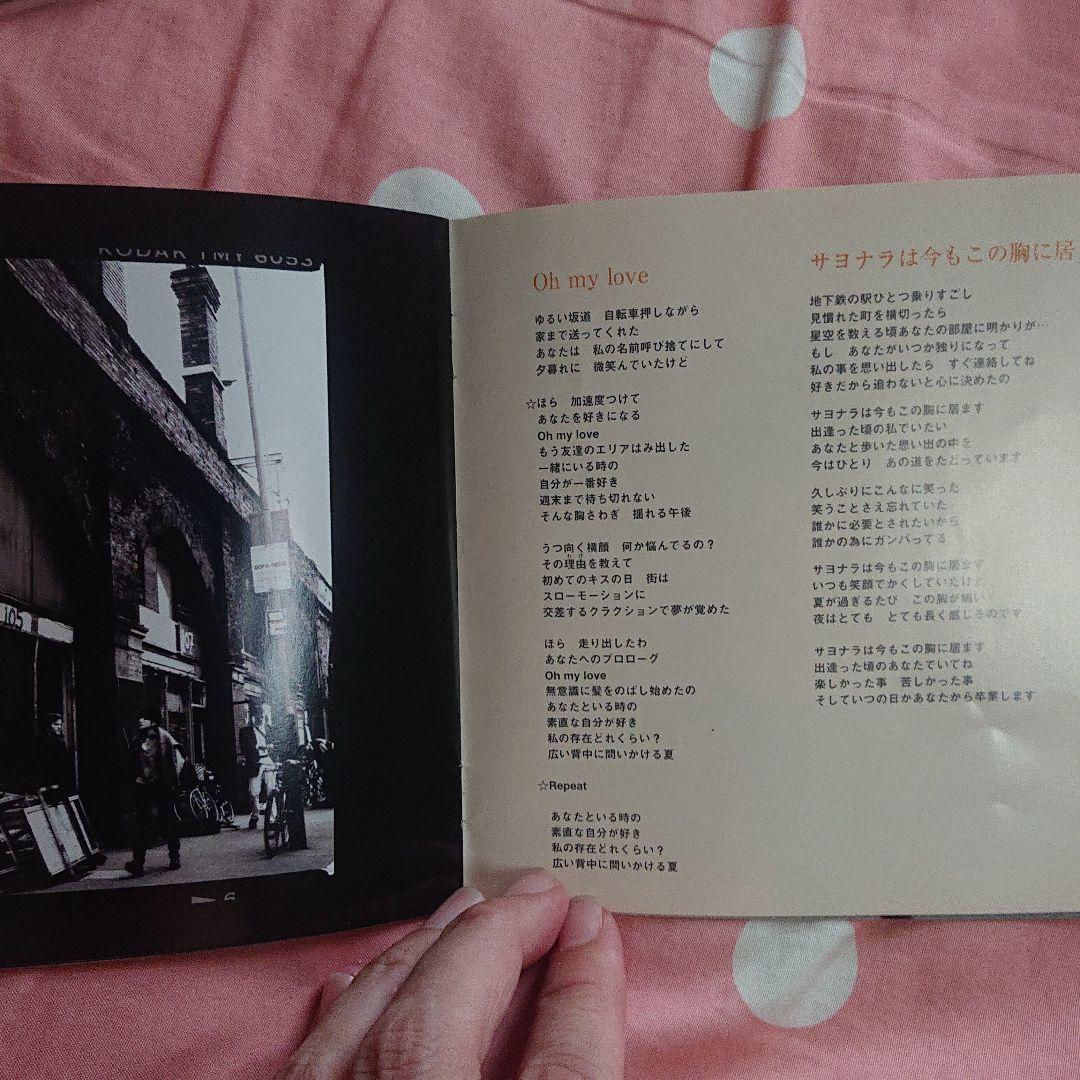 KODAK TMY 6053
105
Oh my love
ゆるい坂道　自転車押しながら
家まで送ってくれた
あなたは　私の名前呼び捨てにして
夕暮れに　微笑んでいたけど
☆ほら　加速度つけて
あなたを好きになる
Oh my love
もう友達のエリアはみ出した
一緒にいる時の
自分が一番好き
週末まで待ち切れない
そんな胸さわぎ　揺れる午後
うつ向く横顔　何か悩んでるの？
その理由を教えて
初めてのキスの日　街は
スローモーションに
交差するクラクションで夢が覚めた
ほら　走り出したわ
あなたへのプロローグ
Oh my love
無意識に髪をのばし始めたの
あなたといる時の
素直な自分が好き
私の存在どれくらい？
広い背中に問いかける夏
☆Repeat
あなたといる時の
素直な自分が好き
私の存在どれくらい？
広い背中に問いかける夏
サヨナラは今もこの胸に居
地下鉄の駅ひとつ乗りすごし
見慣れた町を横切ったら
星空を数える頃あなたの部屋に明かりが…
もし　あなたがいつか独りになって
私の事を思い出したら　すぐ連絡してね
好きだから追わないと心に決めたの
サヨナラは今もこの胸に居ます
出逢った頃の私でいたい
あなたと歩いた思い出の中を
今はひとり　あの道をたどっています
久しぶりにこんなに笑った
笑うことさえ忘れていた
誰かに必要とされたいから
誰かの為にガンバってる
サヨナラは今もこの胸に居ます
いつも笑顔でかくしていたけど
夏が過ぎるたび　この胸が痛い
夜はとても　とても長く感じるのです
サヨナラは今もこの胸に居ます
出逢った頃のあなたでいてね
楽しかった事　苦しかった事
そしていつの日かあなたから卒業します